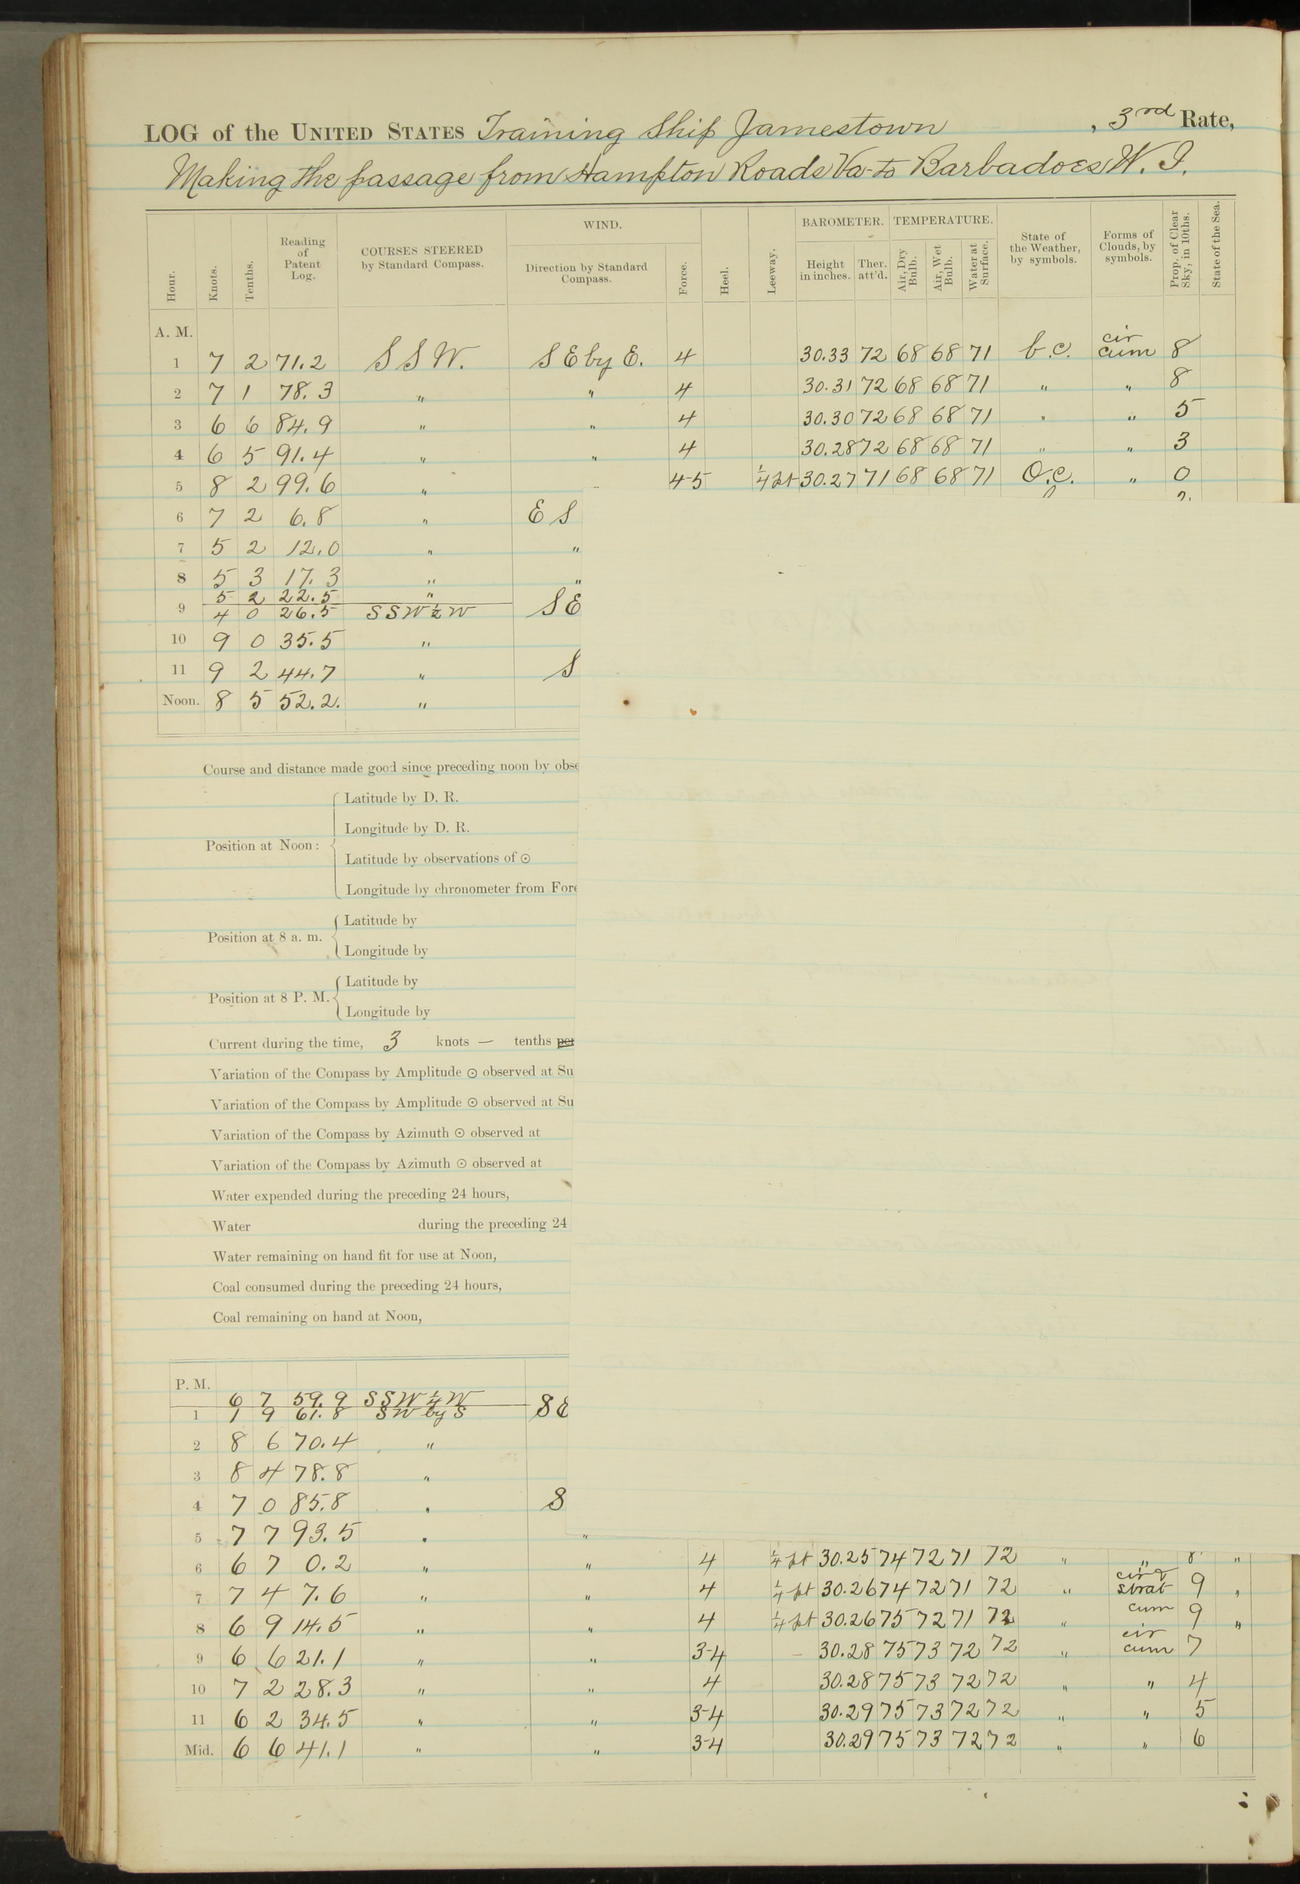 LOG of the UNITED STATES Training Ship Jamestown , 3rd Rate,
Making the passage from Hampton Roads Va to Barbadoes W. I.
Hour. Knots. Tenths. Reading of Patent Log. COURSES STEERED by Standard Compass. WIND. Direction by Standard Compass. Force. Heel. Leeway. BAROMETER. Height in inches. Ther. att'd. TEMPERATURE. Air, Dry Bulb. Air, Wet Bulb. Water at Surface. State of the Weather, by symbols. Forms of Clouds, by symbols. Prop. of Clear Sky, in 10ths. State of the Sea.
A. M.
1 7 2 71.2 S S W. S E by E. 4 30.33 72 68 68 71 b.c. cir cum 8
2 7 1 78.3 " " 4 30.31 72 68 68 71 " " 8
3 6 6 84.9 " " 4 30.30 72 68 68 71 " " 5
4 6 5 91.4 " " 4 30.28 72 68 68 71 " " 3
5 8 2 99.6 " 4-5 1/4 pt 30.27 71 68 68 71 O.C. " 0
6 7 2 6.8 " E S
7 5 2 12.0 " "
8 5 3 17.3 " "
5 2 22.5 "
9 4 0 26.5 S S W 1/2 W S E
10 9 0 35.5 "
11 9 2 44.7 " S
Noon. 8 5 52.2. "
Course and distance made good since preceding noon by obse
Position at Noon: Latitude by D. R.
Longitude by D. R.
Latitude by observations of ⊙
Longitude by chronometer from Fore
Position at 8 a. m. Latitude by
Longitude by
Position at 8 P. M. Latitude by
Longitude by
Current during the time, 3 knots — tenths per
Variation of the Compass by Amplitude ⊙ observed at Su
Variation of the Compass by Amplitude ⊙ observed at Su
Variation of the Compass by Azimuth ⊙ observed at
Variation of the Compass by Azimuth ⊙ observed at
Water expended during the preceding 24 hours,
Water during the preceding 24
Water remaining on hand fit for use at Noon,
Coal consumed during the preceding 24 hours,
Coal remaining on hand at Noon,
P. M.
6 7 59.9 S S W 1/4 W
1 1 9 61.8 S W by S S E
2 8 6 70.4 "
3 8 4 78.8 "
4 7 0 85.8 " S
5 7 7 93.5 " "
6 6 7 0.2 " " 4 1/4 pt 30.25 74 72 71 72 " " 8 "
7 7 4 7.6 " " 4 1/4 pt 30.26 74 72 71 72 " cir & strat 9 "
8 6 9 14.5 " " 4 1/4 pt 30.26 75 72 71 72 " cum 9 "
9 6 6 21.1 " " 3-4 30.28 75 73 72 72 " cir cum 7
10 7 2 28.3 " " 4 30.28 75 73 72 72 " " 4
11 6 2 34.5 " " 3-4 30.29 75 73 72 72 " " 5
Mid. 6 6 41.1 " " 3-4 30.29 75 73 72 72 " " 6